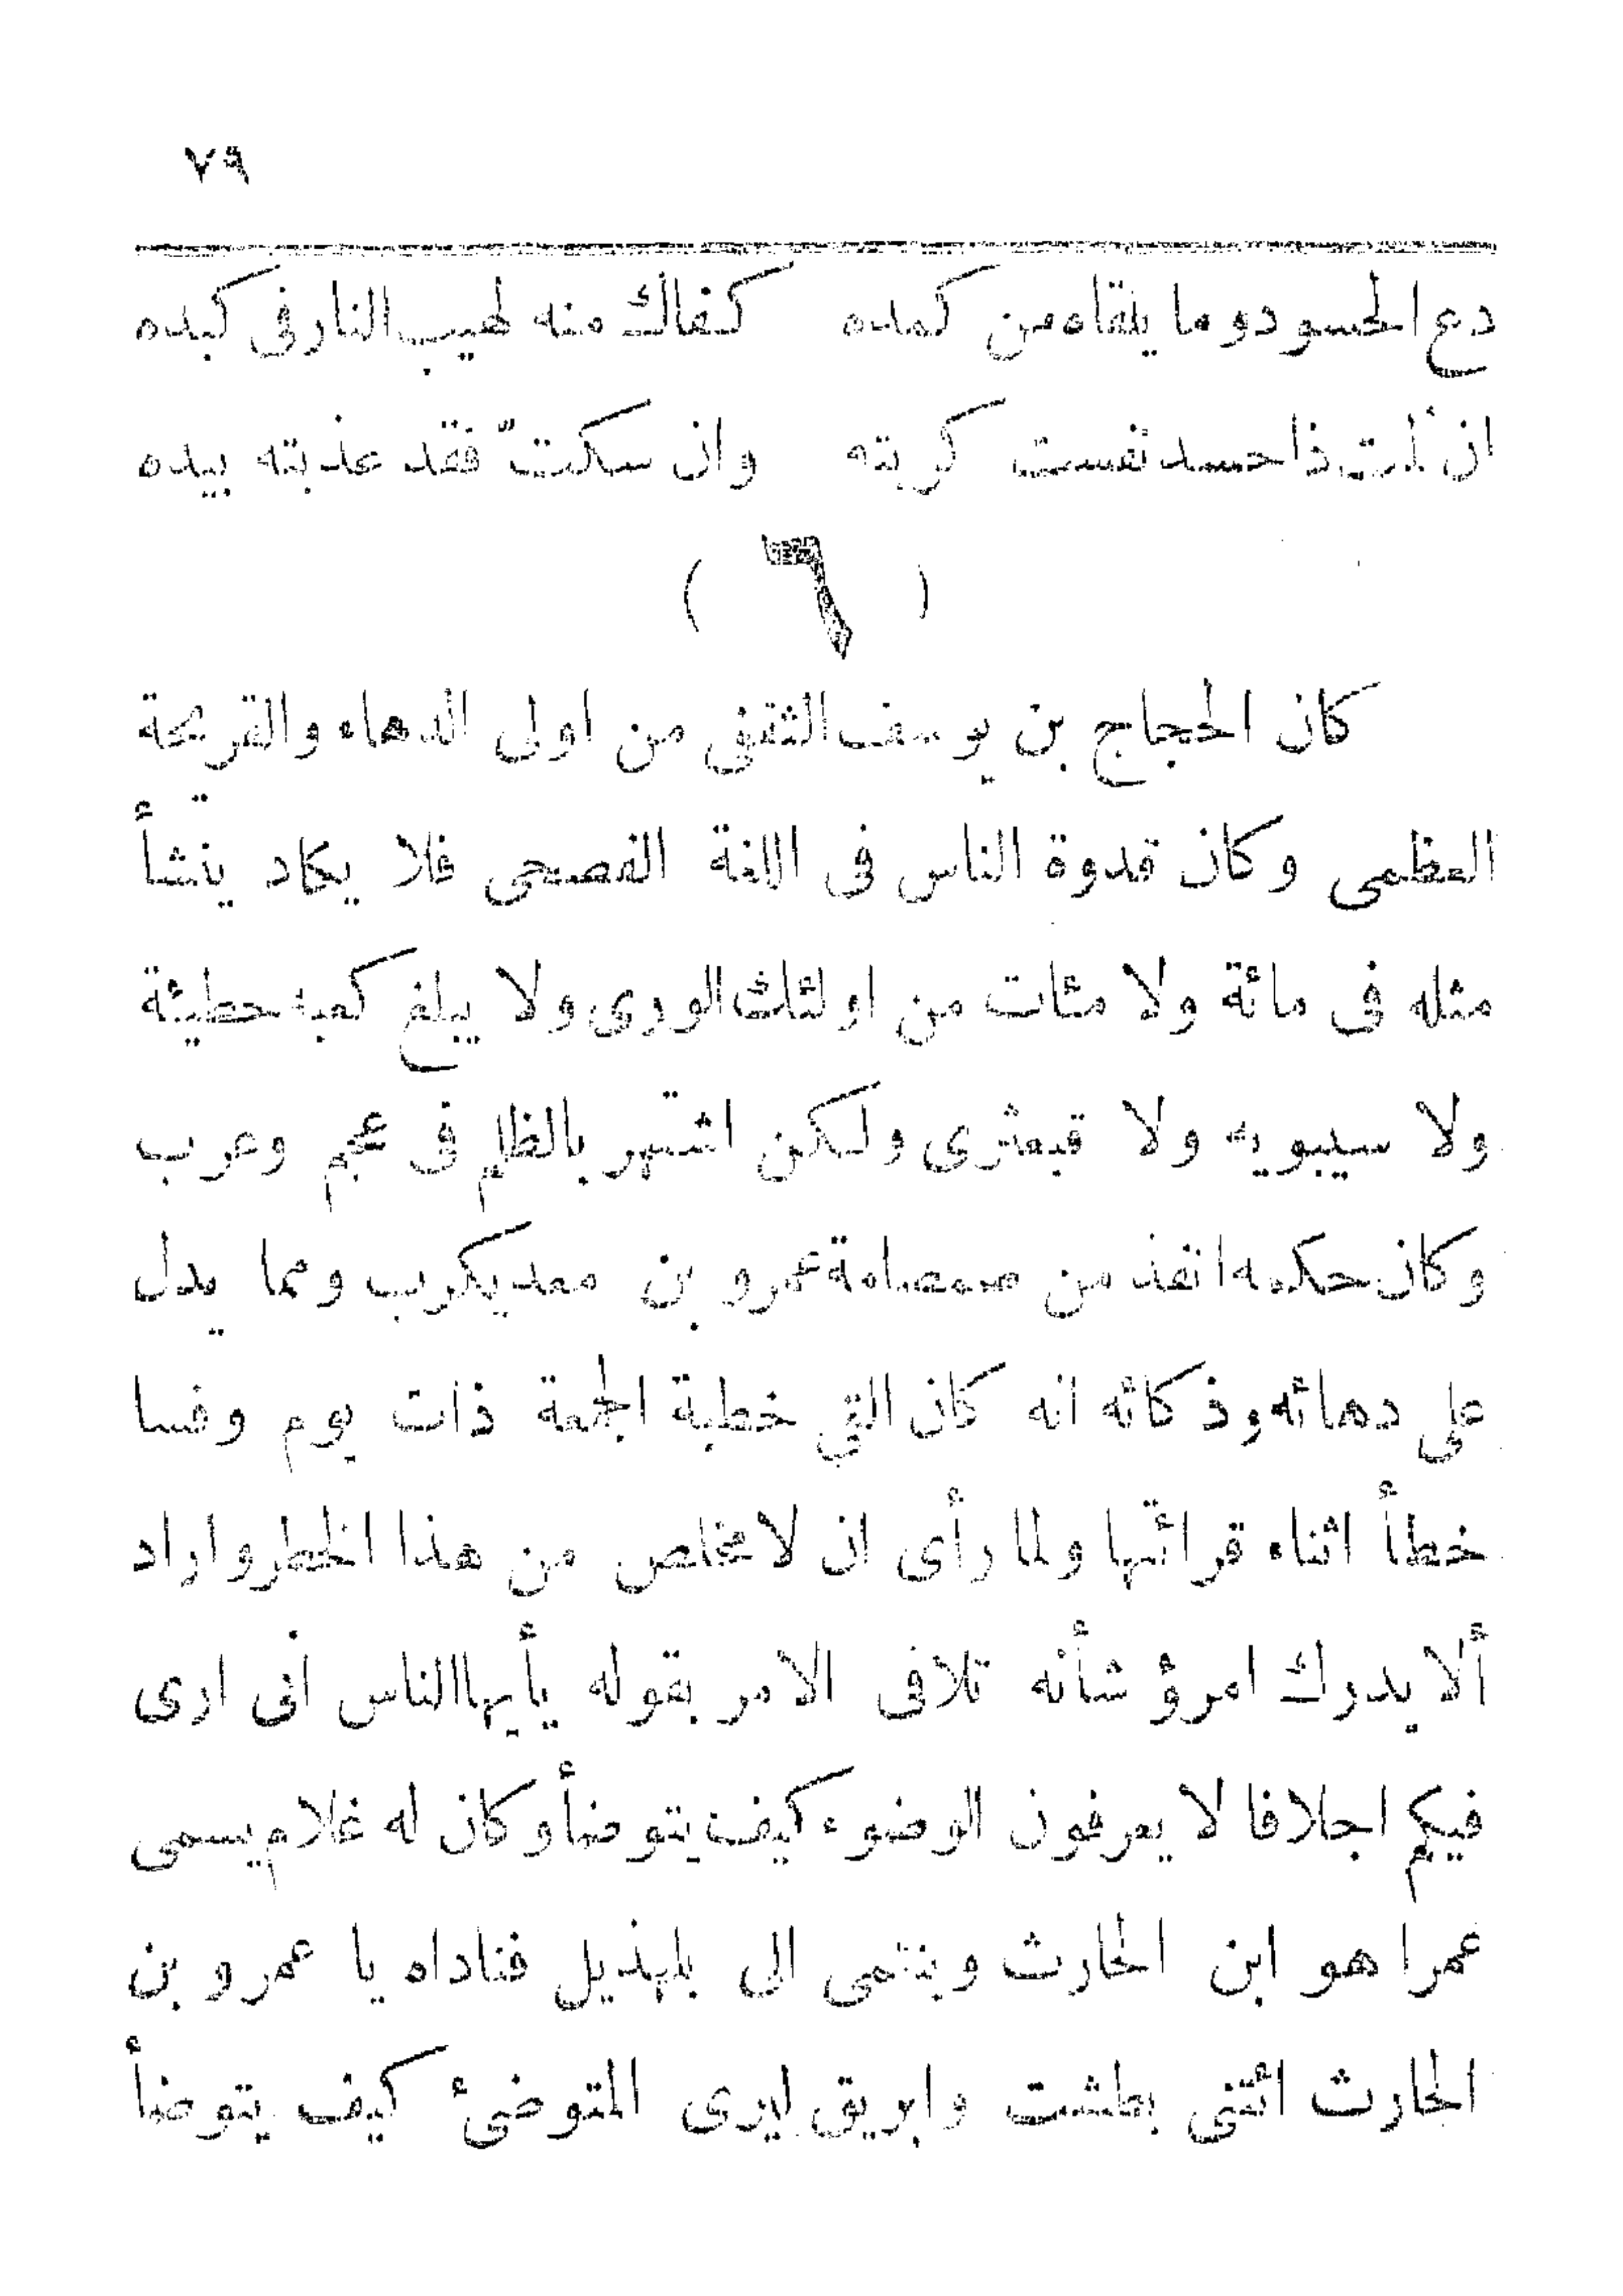 ٧٩
دع الحسود وما يلقاه من كمده كفاك منه لهيب النار فى كبده
ان لمت ذا حسد نفست كربته وان سكتّ فقد عذبته بيده
( ٦ )
كان الحجاج بن يوسف الثقفى من اولى الدهاء والقريحة
العظمى وكان قدوة الناس فى اللغة الفصحى فلا يكاد ينشأ
مثله فى مائة ولا مئات من اولئك الورى ولا يبلغ كعبه حطيئة
ولا سيبويه ولا قبعثرى ولكن اشتهر بالظلم فى عجم وعرب
وكان حكمه انفذ من صمصامة عمرو بن معديكرب ومما يدل
على دهائه وذكائه انه كان القى خطبة الجمعة ذات يوم وفسا
خطأ اثناء قرائتها ولما رأى ان لا مخلص من هذا الخطر واراد
ألا يدرك امرؤ شأنه تلافى الامر بقوله يأيها الناس انى ارى
فيكم اجلافا لا يعرفون الوضوء كيف يتوضأ وكان له غلام يسمى
عمرا هو ابن الحارث وينتمى الى بلهذيل فناداه يا عمرو بن
الحارث ائتنى بطشت وابريق ليرى المتوضئ كيف يتوضأ